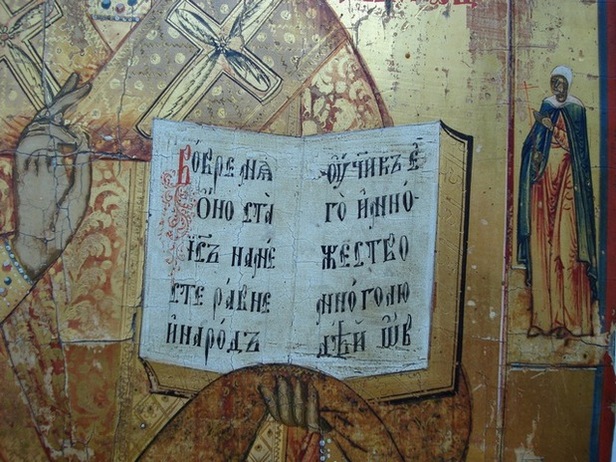 Во́времѧ
Ѻ҆́но ста
І҆и҃съ намѣ́
сте ра́вне
и҆наро́дъ
оу҆чн҃къ є҆
гѡ̀ и҆мно́-
жество
мно́голю
де́й ѿв